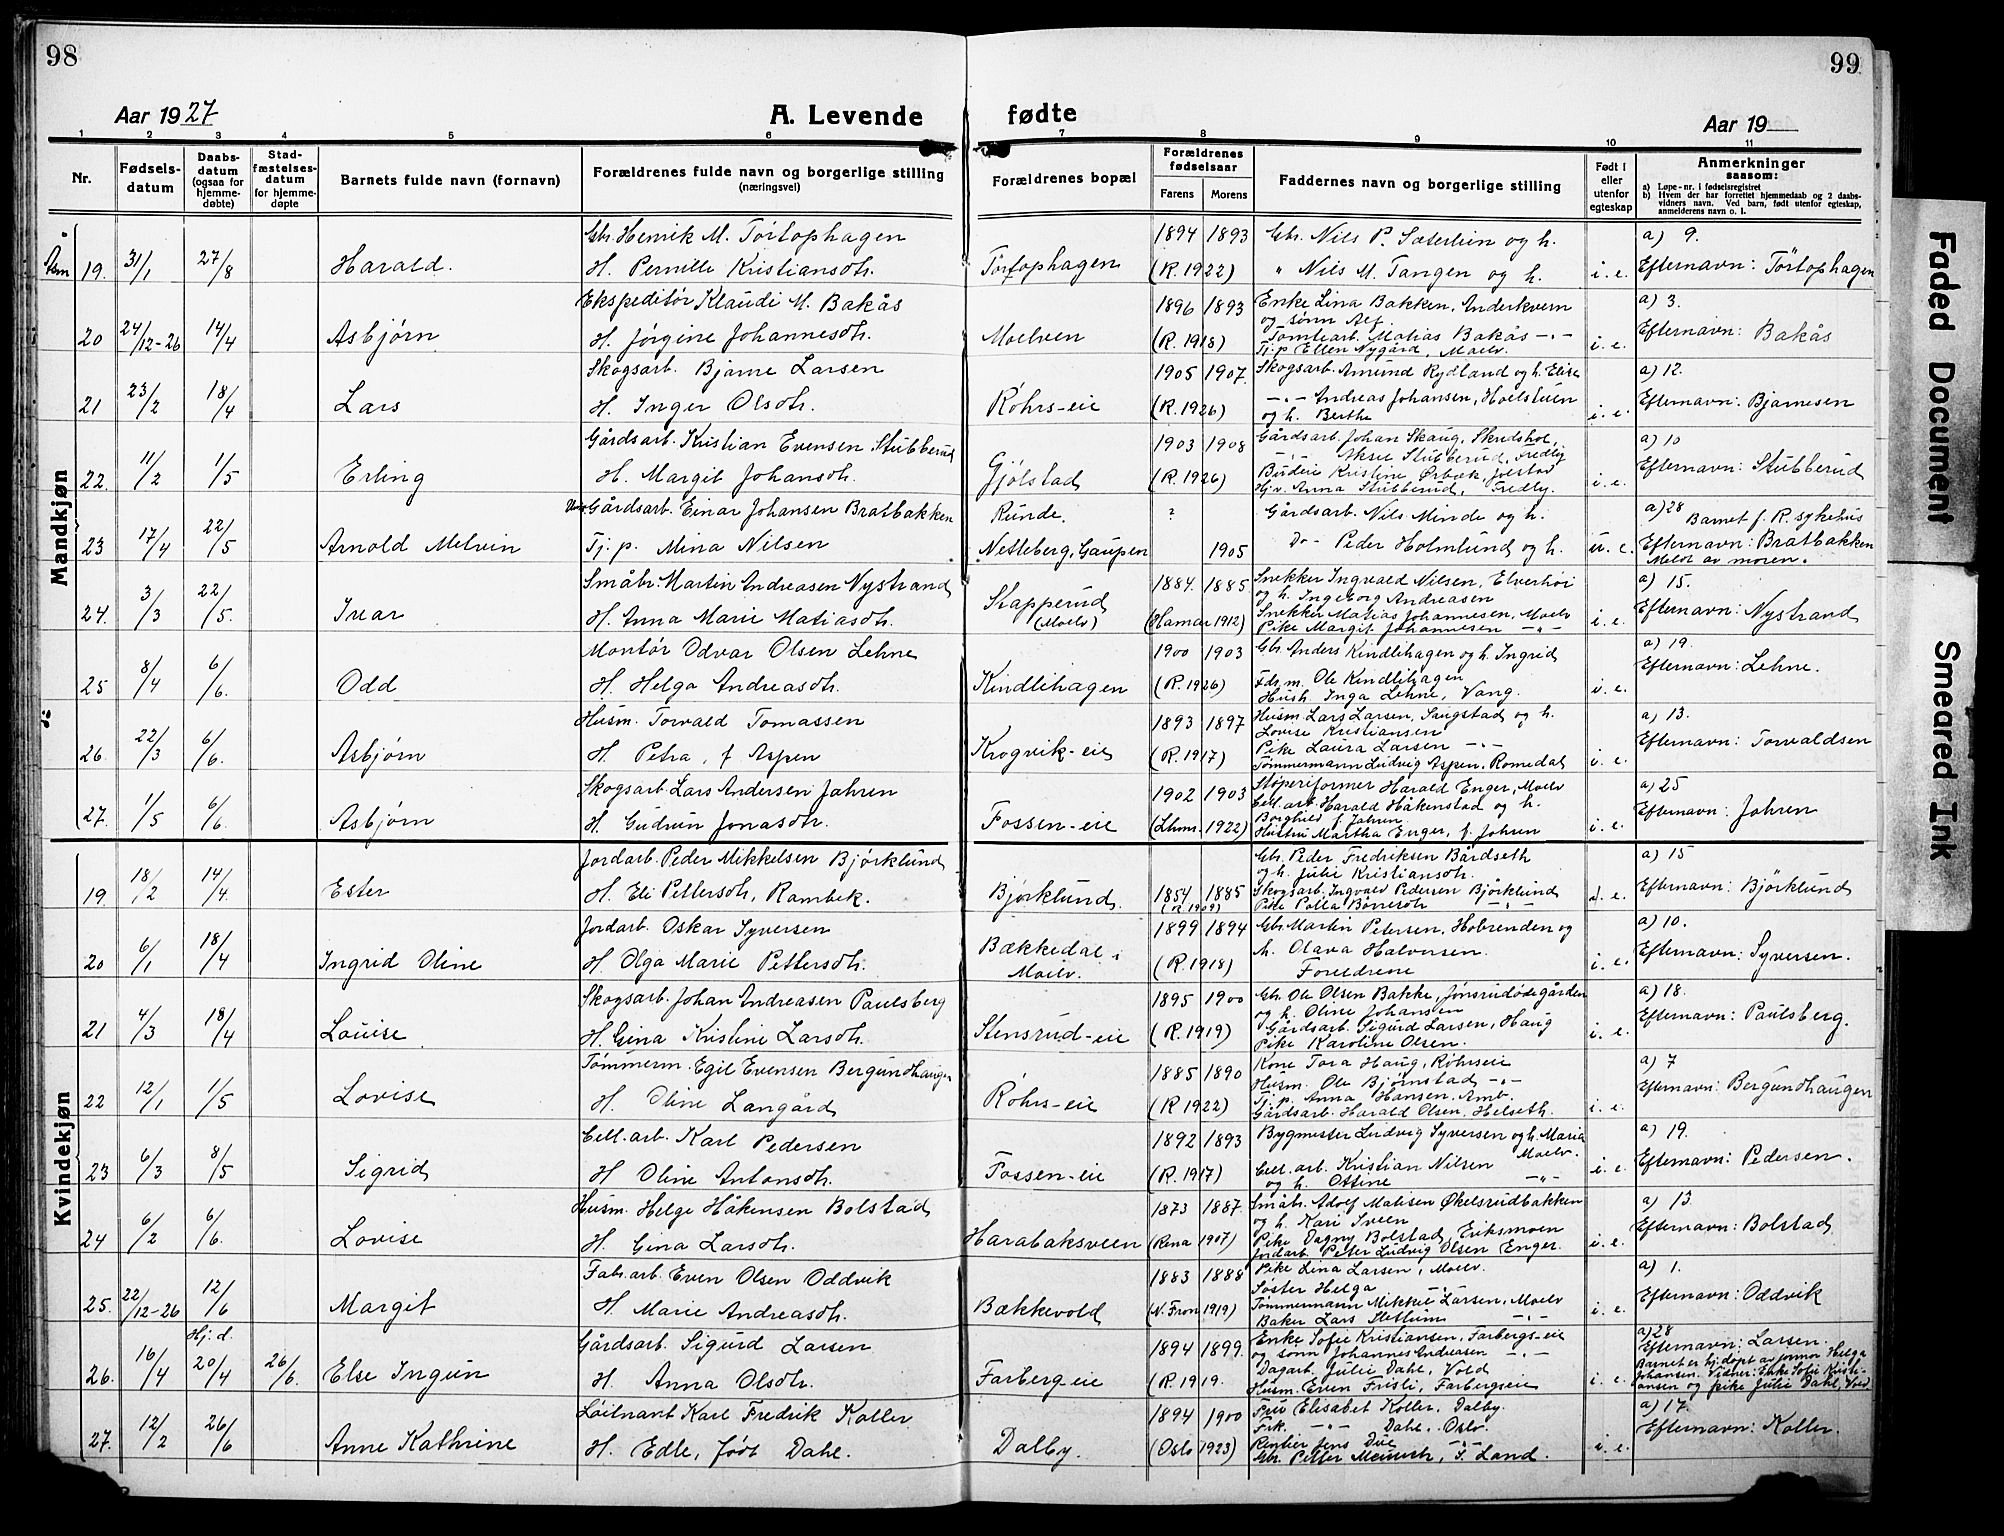 98
99
Aar 1927
A. Levende
fødte
Aar 19
1 2 3 4 5 6 7 8 9 10 11
Nr.
Fødsels-
datum
Daabs-
datum
(ogsaa for
hjemme-
døbte)
Stad-
fæstelses-
datum
for hjemme-
døpte
Barnets fulde navn (fornavn)
Forældrenes fulde navn og borgerlige stilling
(næringsvei)
Forældrenes bopæl
Forældrenes
fødselsaar
Farens
Morens
Faddernes navn og borgerlige stilling
Født i
eller
utenfor
egteskap
Anmerkninger
saasom:
a) Løpe-nr. i fødselsregistret
b) Hvem der har forrettet hjemmedaab og 2 daabs-
vidners navn. Ved barn, født utenfor egteskap,
anmelderens navn o. l.
Mandkjøn
Gbr. Henrik M. Törtophagen 1894 1893 Gbr. Nils P. Sæterlien og h. a) 9.
19. 31/1 27/8 Harald. H. Pernille Kristiansdtr. Törtophagen (R. 1922) " Nils M. Tangen og h. i. e. Efternavn: Törtophagen
Ekspeditör Klaudi M. Bakås 1896 1893 Enke Lina Bakken, Anderkvern a) 3.
og sönn Alf
20 24/12-26 14/4 Asbjörn H. Jörgine Johannesdtr. Moelven (R. 1918) Tomtearb. Matias Bakås -"- i. e. Efternavn: Bakås
Tj. p. Ellen Nygård, Moelv.
Skogsarb. Bjarne Larsen 1905 1907. Skogsarb. Amund Rydland og h. Elise a) 12.
21 23/2 18/4 Lars H. Inger Olsdtr. Röhrs-eie (R. 1926) -"- Andreas Johansen, Holstuen i. e. Efternavn: Bjarnesen
og h. Berthe
Gårdsarb. Kristian Evensen Stubberud 1903 1908 Gårdsarb. Johan Skaug, a) 10
-"- Stubberud, Fredly
22. 11/2 1/5 Erling H. Margit Johansdtr. Gjölstad (R. 1926) Budeie Kristine Ørbæk, i. e. Efternavn: Stubberud
Hj.v. Anna Stubberud, Fredly.
Gårdsarb. Einar Johansen Bratbakken Runde. ? Gårdsarb. Nils Minde og h. a) 28 Barnet f. R. sykehus
23 17/4 22/5 Arnold Melvin Tj. p. Mina Nilsen Netteberg, Gaupen 1905 Do - Peder Holmlund og h. u. e. Efternavn: Bratbakken
Meldt av moren.
Småbr. Martin Andreasen Nystrand 1884 1885 Snekker Ingvald Nilsen, Elverhöi a) 15.
og h. Ingeborg Andreasen
24. 3/3 22/5. Ivar H. Anna Marie Matiasdtr. Stapperud (Moelv) (Hamar 1912) Snekker Matias Johannesen, Moelv i. e. Efternavn: Nystrand
Pike Margit Johannesen -"-
Montör Odvar Olsen Lehne 1900 1903 Gbr. Anders Kindlihagen og h. Ingrid a) 19.
25 8/4 6/6. Odd H. Helga Andreasdtr. Kindlihagen (R. 1926) Fdr. m. Ole Kindlihagen i. e. Efternavn: Lehne.
Hush. Inga Lehne, Vang.
Husm. Torvald Tomassen 1893 1897 Husm. Lars Larsen, Saugstad og h. a) 13.
Lovise Kristiansen
26 22/3 6/6. Asbjörn H. Petra, f. Aspen Krogvik-eie (R. 1917) Pike Laura Larsen -"- i. e. Efternavn: Torvaldsen
Tömmermann Ludvig Aspen, Romedal
Skogsarb. Lars Andersen Jahren 1902 1903 Stöperiformer Harald Enger, Moelv a) 25
Cell. arb. Harald Håkenstad og h.
Borghild f. Jahren.
27. 1/5 6/6. Asbjörn H. Gudrun Jonasdtr. Fossen-eie (Lhmr. 1922) Hustru Martha Enger, f. Jahren i. e. Efternavn: Jahren
Kvindekjøn
Jordarb. Peder Mikkelsen Björklund Gbr. Peder Fredriksen Bårdseth a) 15
og h. Julie Kristiansdtr.
19. 18/2 14/4. Ester H. Eli Pettersdtr, Rambek. Björklund. 1854 1885 (R. 1909) Skogsarb. Ingvald Pedersen Björklund Efternavn: Björklund
Jordarb. Oskar Syversen 1899 1894 Gbr. Martin Petersen, Hobrenden og a) 10.
20 6/1 18/4 Ingrid Oline H. Olga Marie Pettersdtr. Bækkedal i Moelv. (R. 1918) h. Olava Halvorsen. i. e. Efternavn: Syversen.
Foreldrene
Skogsarb. Johan Andreasen Paulsberg 1895 1900 Gbr. Ole Olsen Bakke, Jönsrudödegården a) 18.
og h. Oline Johansen
21 4/3 18/4 Louise H. Gina Kristine Larsdtr. Stensrud-eie (R. 1919) Gårdsarb. Sigurd Larsen, Haug i. e. Efternavn: Paulsberg.
Pike Karoline Olsen.
Tömmerm. Egil Evensen Bergundhaugen 1885 1890 Kone Tora Haug, Röhrseie a) 7
Husm. Ole Björnstad -"-
22 12/1 1/5 Lovise H. Oline Langård Röhrs-eie (R 1922) Tj. p. Anna Hansen, Amb. i. e. Efternavn: Bergundhaugen
Gårdsarb. Harald Olsen, Helseth.
Cell. arb. Karl Pedersen 1892 1893 Bygmester Ludvig Syversen og h. Maria Moelv. a) 19.
23 6/3 8/5 Sigrid H. Oline Antonsdtr. Fossen-eie (R. 1917) Cell. arb. Kristian Nilsen i. e. Efternavn: Pedersen.
og h. Ottine -"-
Husm. Helge Håkensen Bolstad 1873 1887. Småbr. Adolf Matisen Økelsrudbakken a) 13.
og h. Kari Sveen
24 6/2 6/6. Lovise H. Gina Larsdtr. Harabaksveen (Rena 1907) Pike Dagny Bolstad, Eriksmoen i. e. Efternavn: Bolstad
Jordarb. Peter Ludvig Olsen Enger.
Fab. arb. Even Olsen Oddvik 1883 1888 Pike Lina Larsen, Moelv. a) 1.
Söster Helga -"-
25. 22/12-26 12/6 Margit H. Marie Andreasdtr. Bækkevold (N. Fron 1919) Tömmermann Mikkel Larsen, Moelv i. e. Efternavn: Oddvik
Baker Lars Slettum -"-
Hj. d. Gårdsarb. Sigurd Larsen 1894 1899. Enke Sofie Kristiansen, Farbergs-eie a) 28
og sönn Johannes Andreasen -"- Efternavn: Larsen.
26. 16/4 20/4 26/6. Else Ingun H. Anna Olsdtr. Farberg-eie (R. 1919. Dagarb. Julie Dahl, Vold i. e. Barnet er hj. döpt av jormor Helga
Husm. Even Fristi, Farbergseie Johansen. Vidner: Enke Sofie Kristi-
ansen og pike Julie Dahl, Vold
Löitnant Karl Fredrik Koller 1894 1900 Fru Elisabet Koller, Dalby. a) 17.
Frk. -"- Dahl, Oslo.
27. 12/2 26/6 Anne Kathrine H. Edle, född Dahl. Dalby. (Oslo 1923) Rentier Jens Due -"- i. e. Efternavn: Koller.
Gbr. Petter Meinich, S. Land.
Faded Document
Smeared Ink